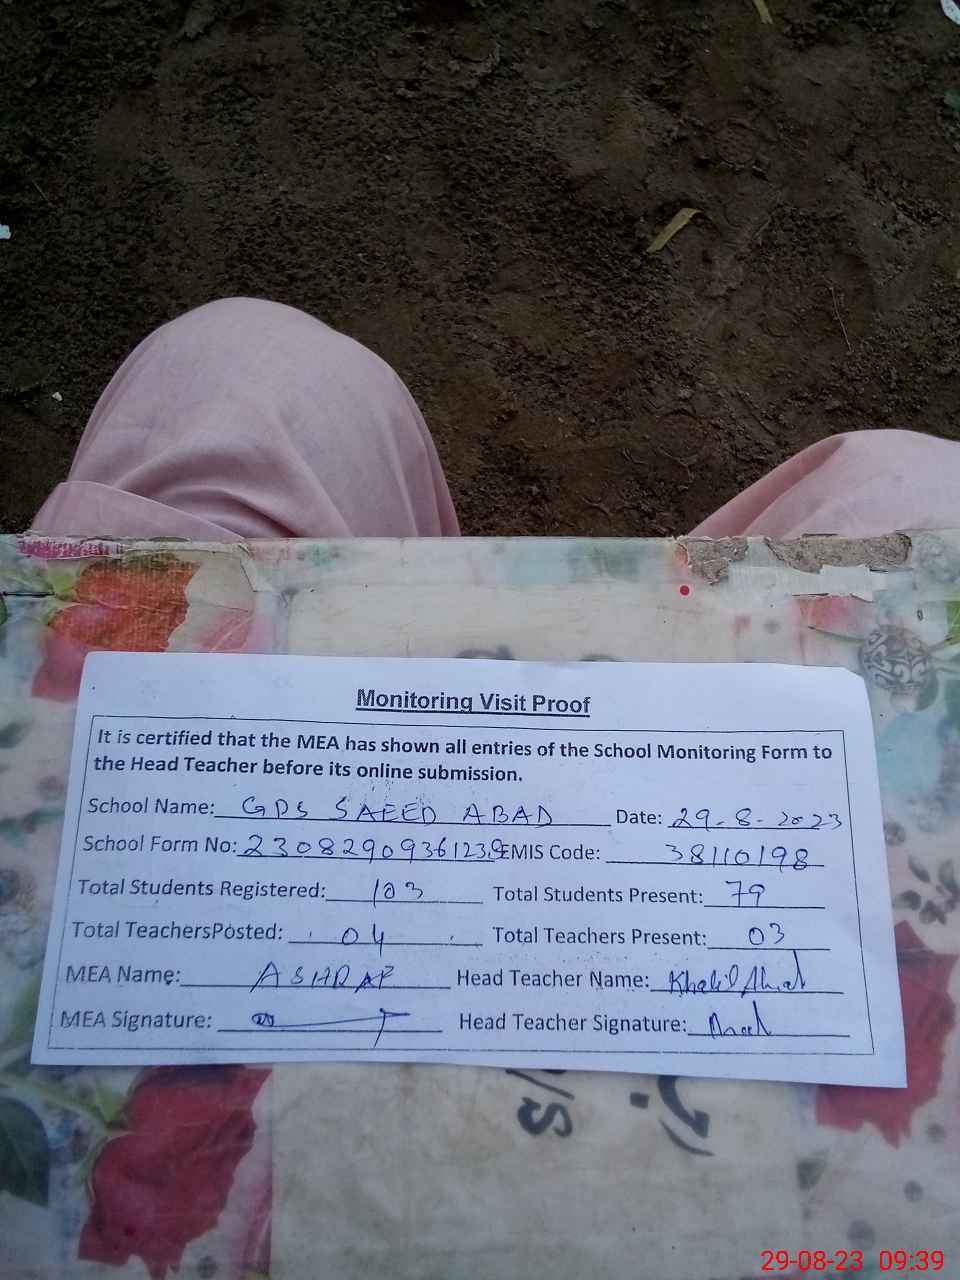 Monitoring Visit Proof
It is certified that the MEA has shown all entries of the School Monitoring Form to
the Head Teacher before its online submission.
School Name: GPS SAEED ABAD Date: 29-8-2023
School Form No: 2308290936123 EMIS Code: 38110198
Total Students Registered: 103 Total Students Present: 79
Total TeachersPosted: 04 Total Teachers Present: 03
MEA Name: ASHRAF Head Teacher Name: Khalil Ahmad
MEA Signature: Head Teacher Signature:
29-08-23 09:39